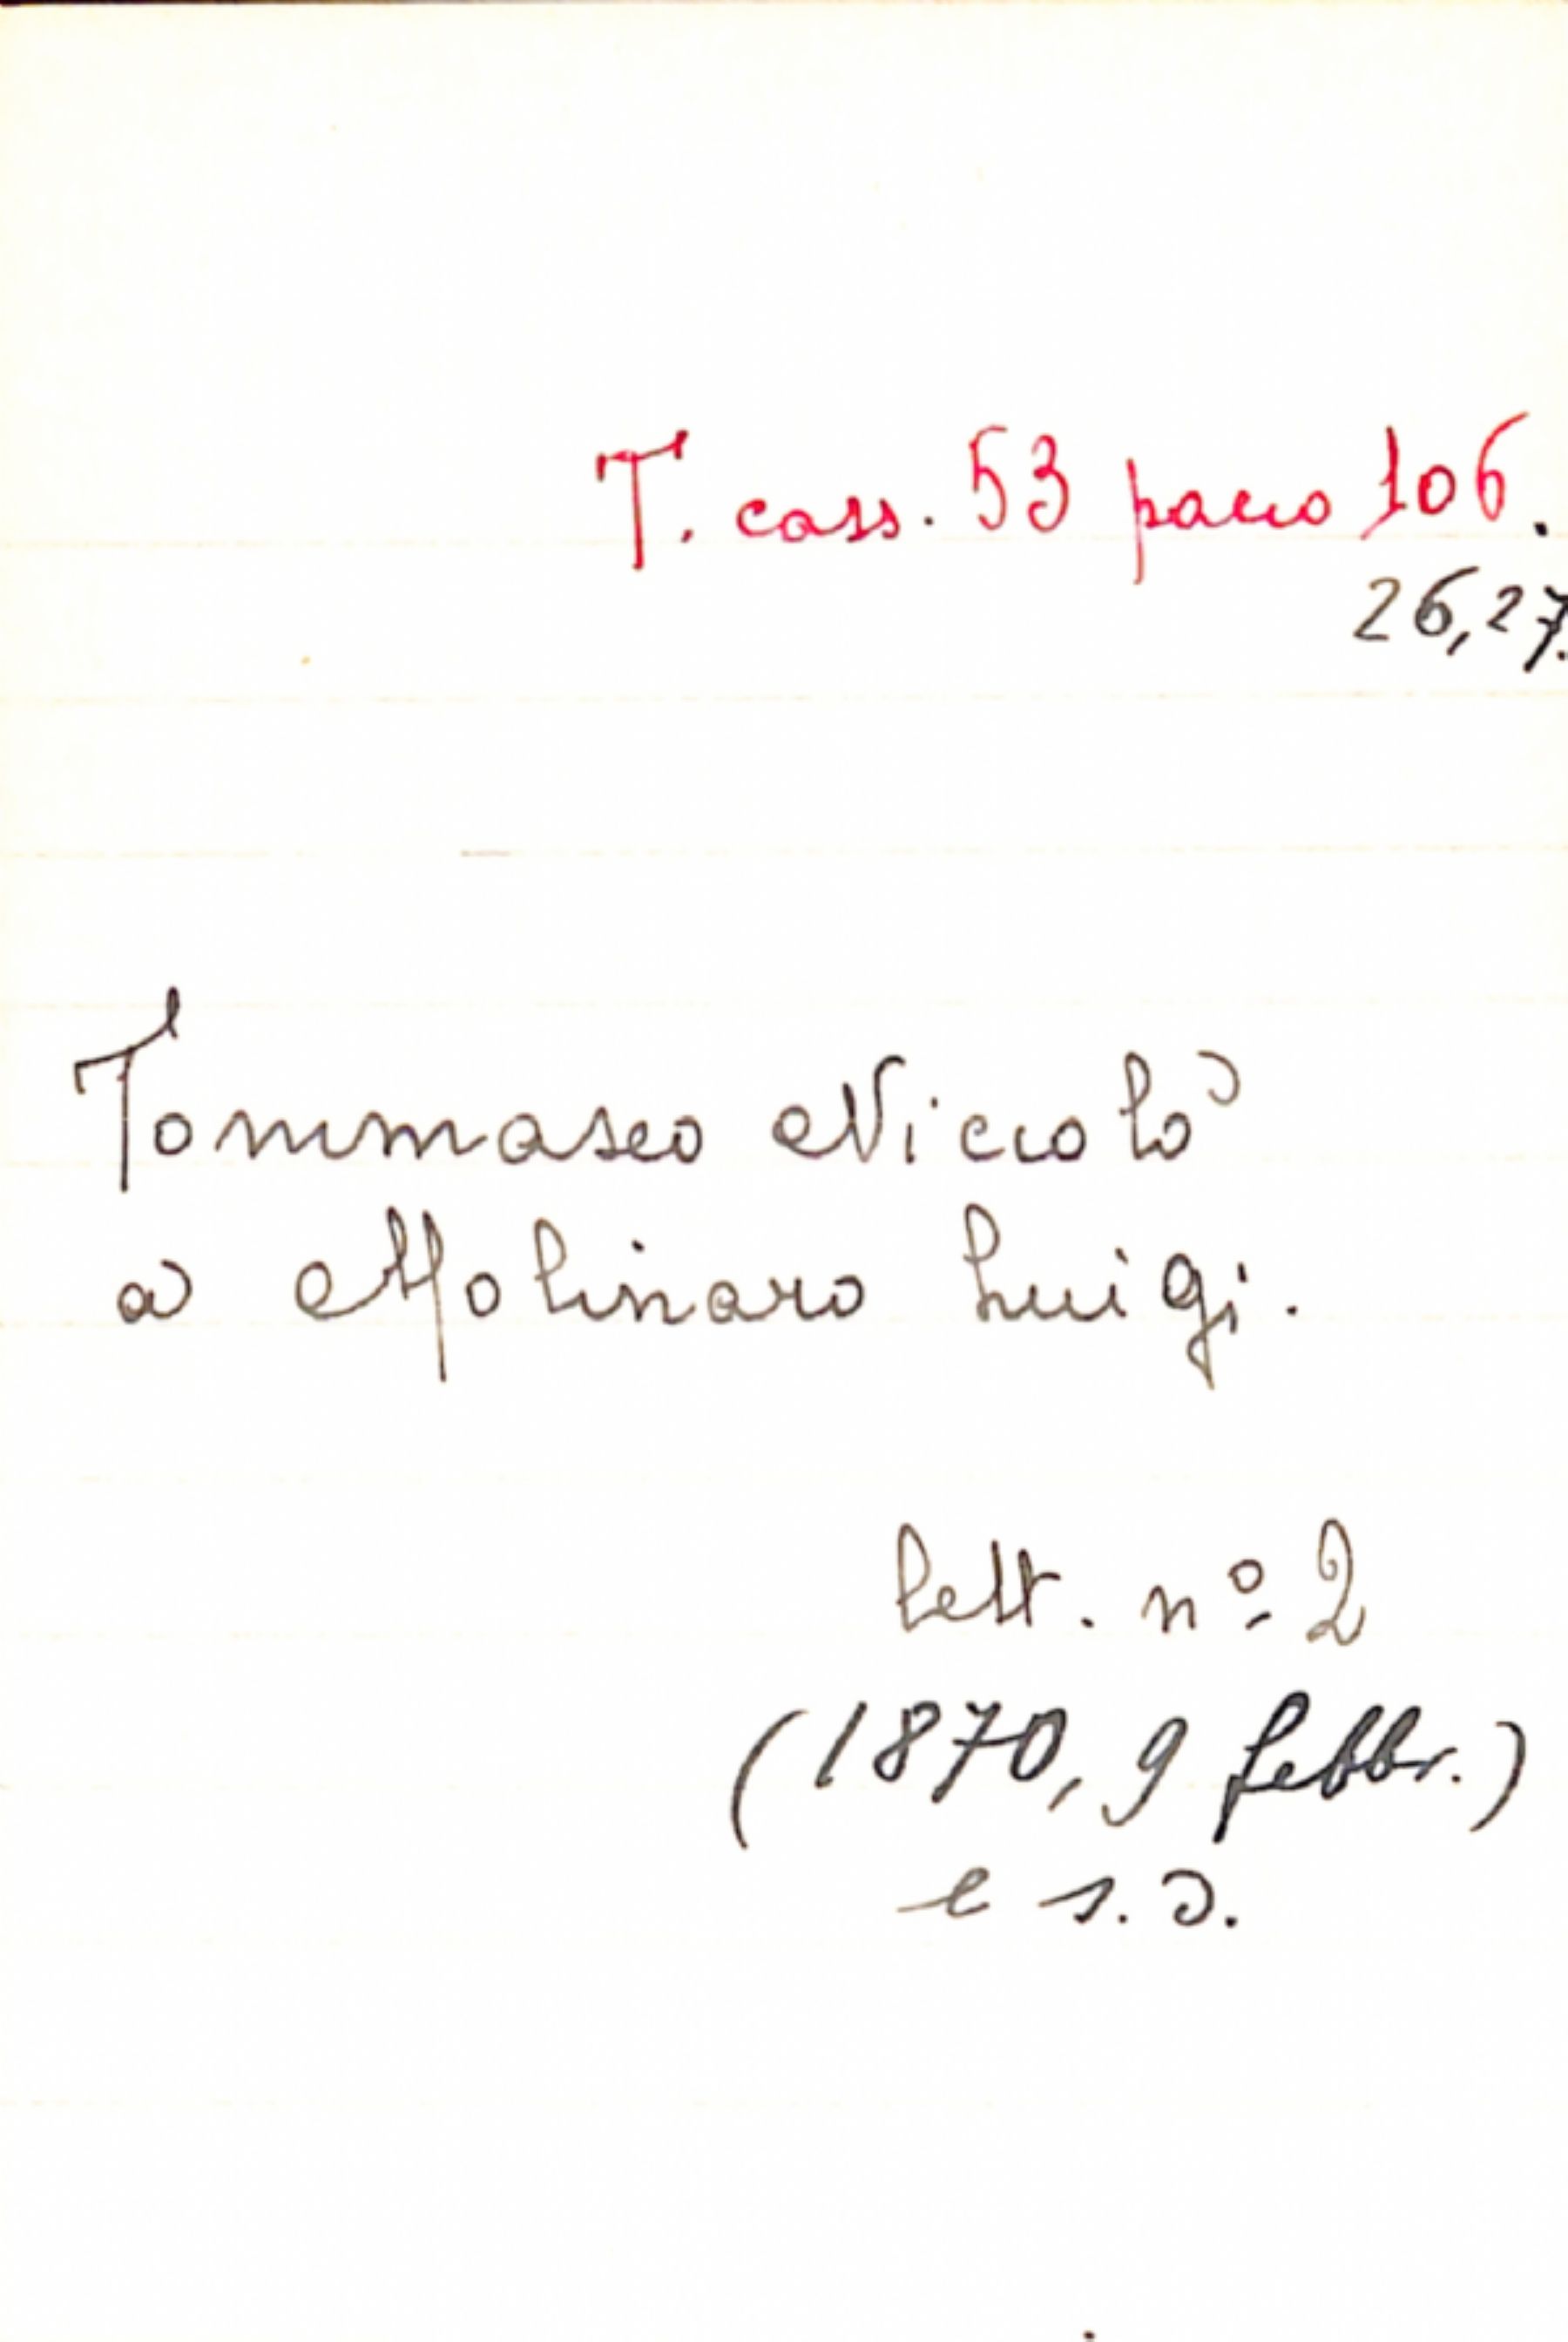 T. cass. 53 pacco 106.
26,27.
Tommaseo Niccolò
a Molinaro Luigi.
lett. nº 2
(1870, 9 febbr.)
e s.d.